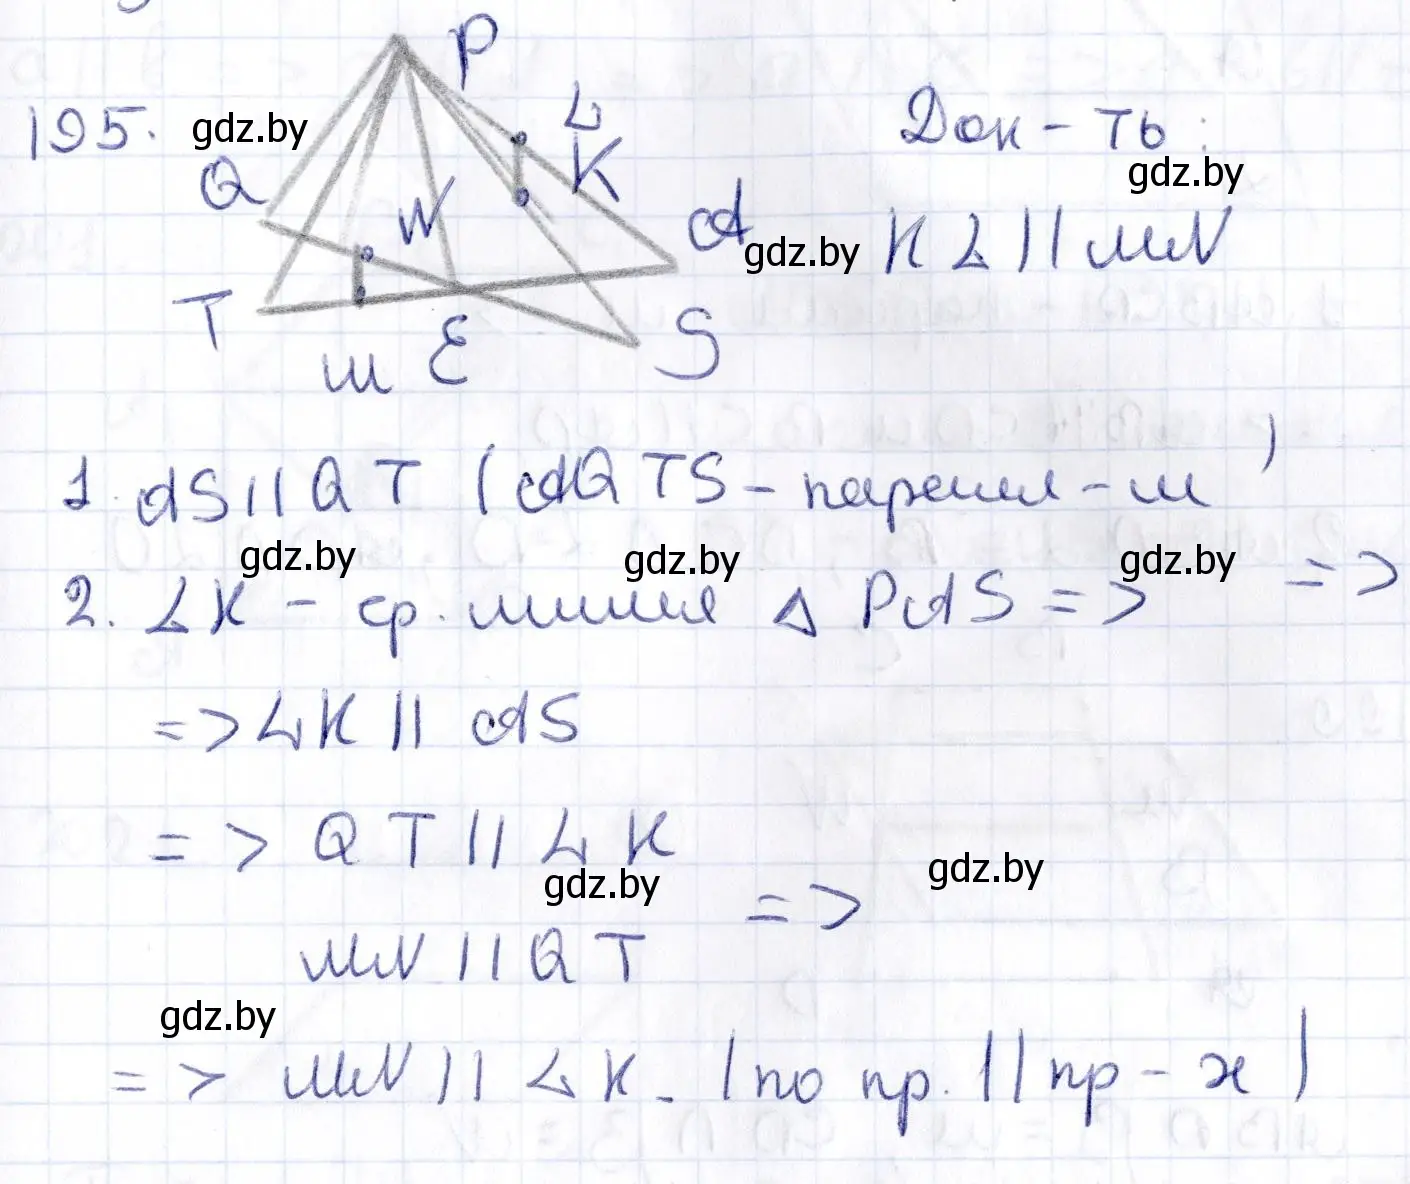 195.
P
L
K
Q
N
A
T
M
E
S
Док-ть:
KL || MN
1. AS || QT (AQTS - парал-м) =>
2. LK - ср. линия △ PAS =>
=> LK || AS
=> QT || LK
MN || QT =>
=> MN || LK. (по пр. || пр-х)
gdz.by
gdz.by
gdz.by
gdz.by
gdz.by
gdz.by
gdz.by
gdz.by
gdz.by